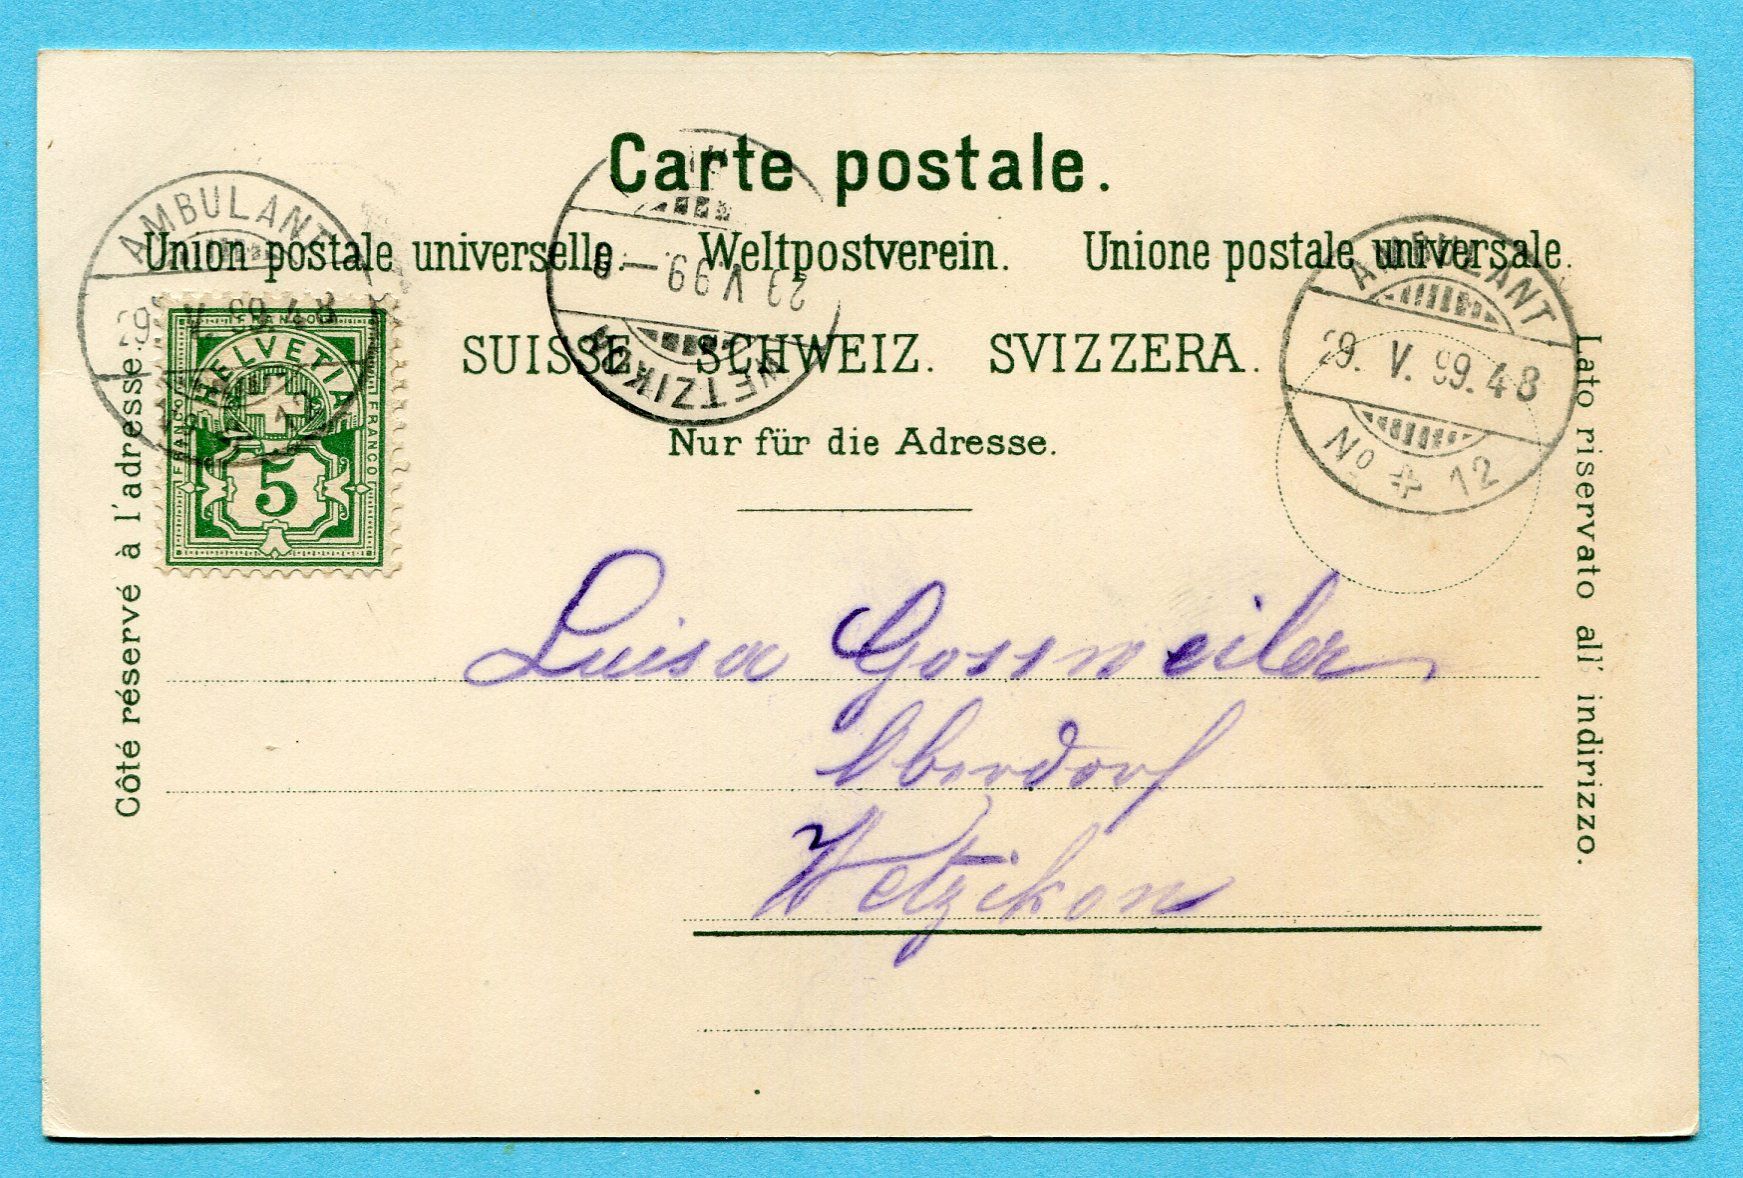 Carte postale.
Union postale universelle. Weltpostverein. Unione postale universale.
SUISSE. SCHWEIZ. SVIZZERA.
Nur für die Adresse.
Côté réservé à l'adresse.
Lato riservato all' indirizzo.
AMBULANT
29. V. 99. 48
FRANCO
HELVETIA
FRANCO
FRANCO
5
V 99
WETZIKON
AMBULANT
29. V. 99. 48
No 12
Luisa Gossweiler
Oberdorf
Wetzikon